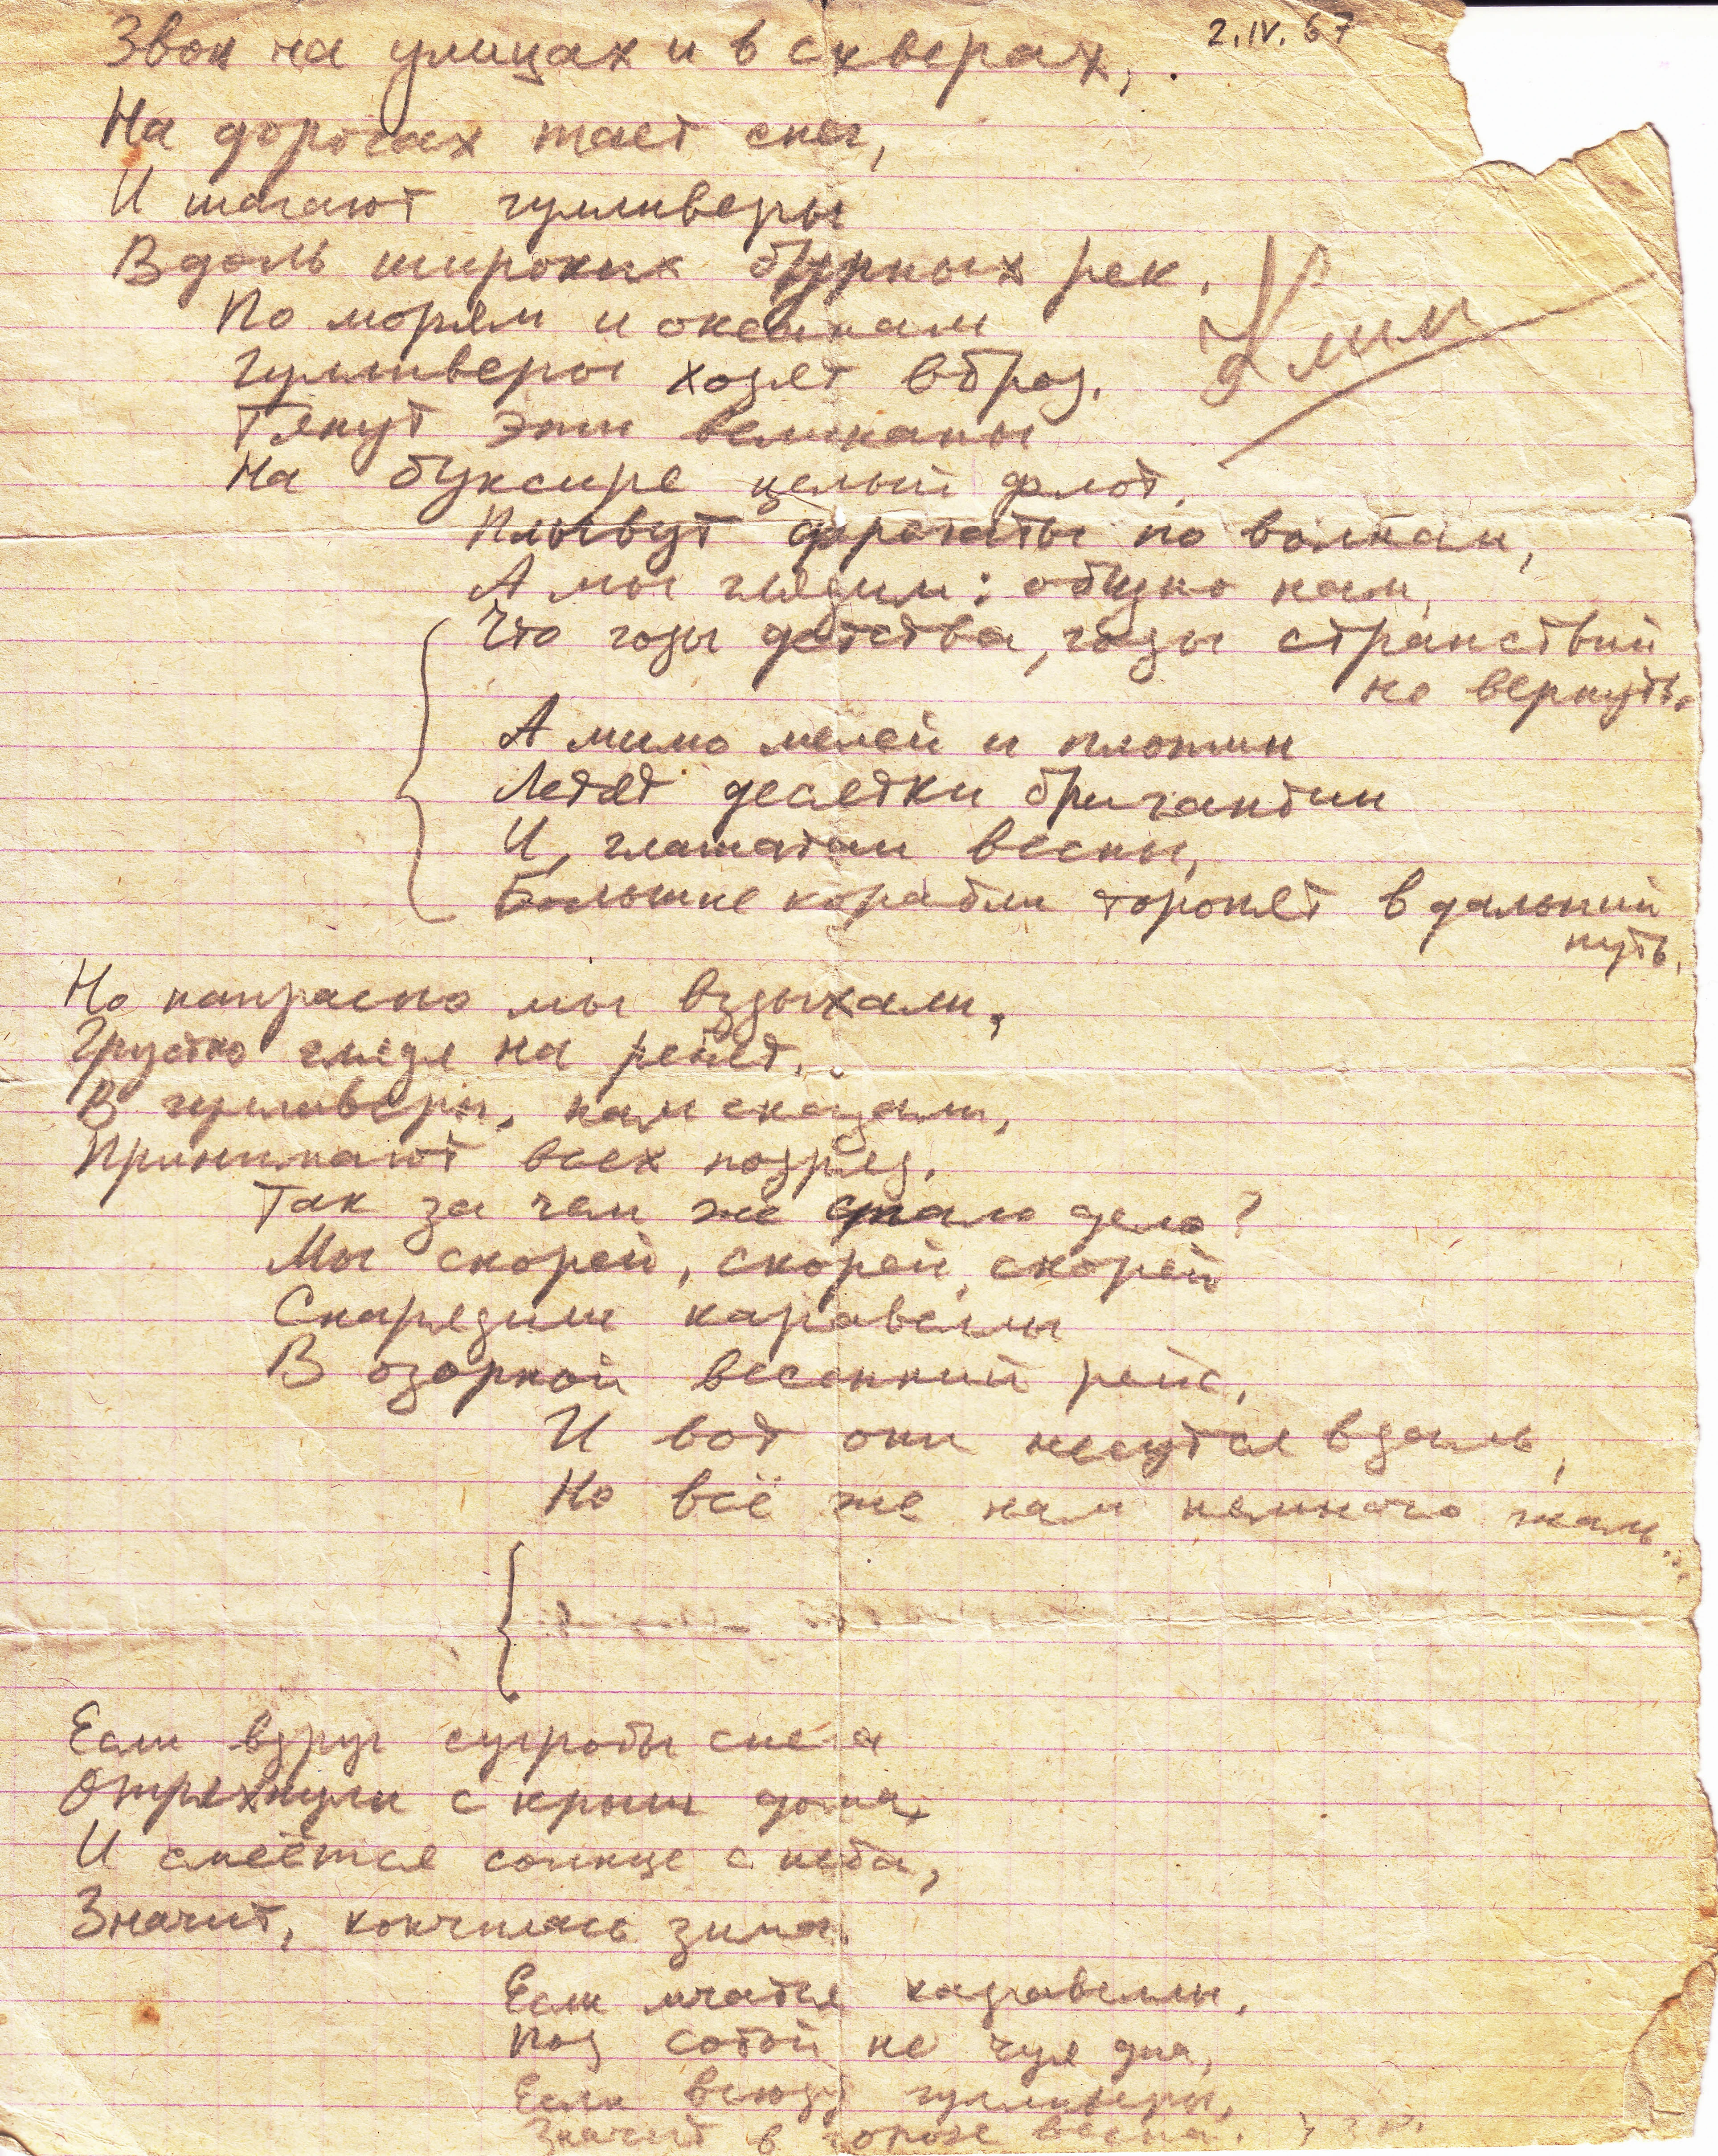 2.IV.67
Звон на улицах и в скверах,
На дорогах тает снег,
И шагают гулливеры
Вдоль широких бурных рек.
По морям и океанам
Гулливеры ходят вброд.
Тянут эти великаны
На буксире целый флот.
Плывут фрегаты по волнам,
А мы глядим: обидно нам,
Что годы детства, годы странствий
не вернуть.
А мимо мелей и плотин
Летят десятки бригантин
И, глашатаи весны,
Большие корабли торопят в дальний
путь.
Но напрасно мы вздыхали,
Грустно глядя на ребят.
В гулливеры, нам сказали,
Принимают всех подряд.
Так за чем же стало дело?
Мы скорей, скорей, скорей
Снарядили каравеллы
В озорной весенний рейс.
И вот они несутся вдаль,
Но всё же нам немного жаль...
Если вдруг сугробы снега
Отряхнули с крыш дома,
И смеётся солнце с неба,
Значит, кончилась зима.
Если мчатся каравеллы,
Под собой не чуя дна,
Если всюду гулливеры,
Значит в городе весна.